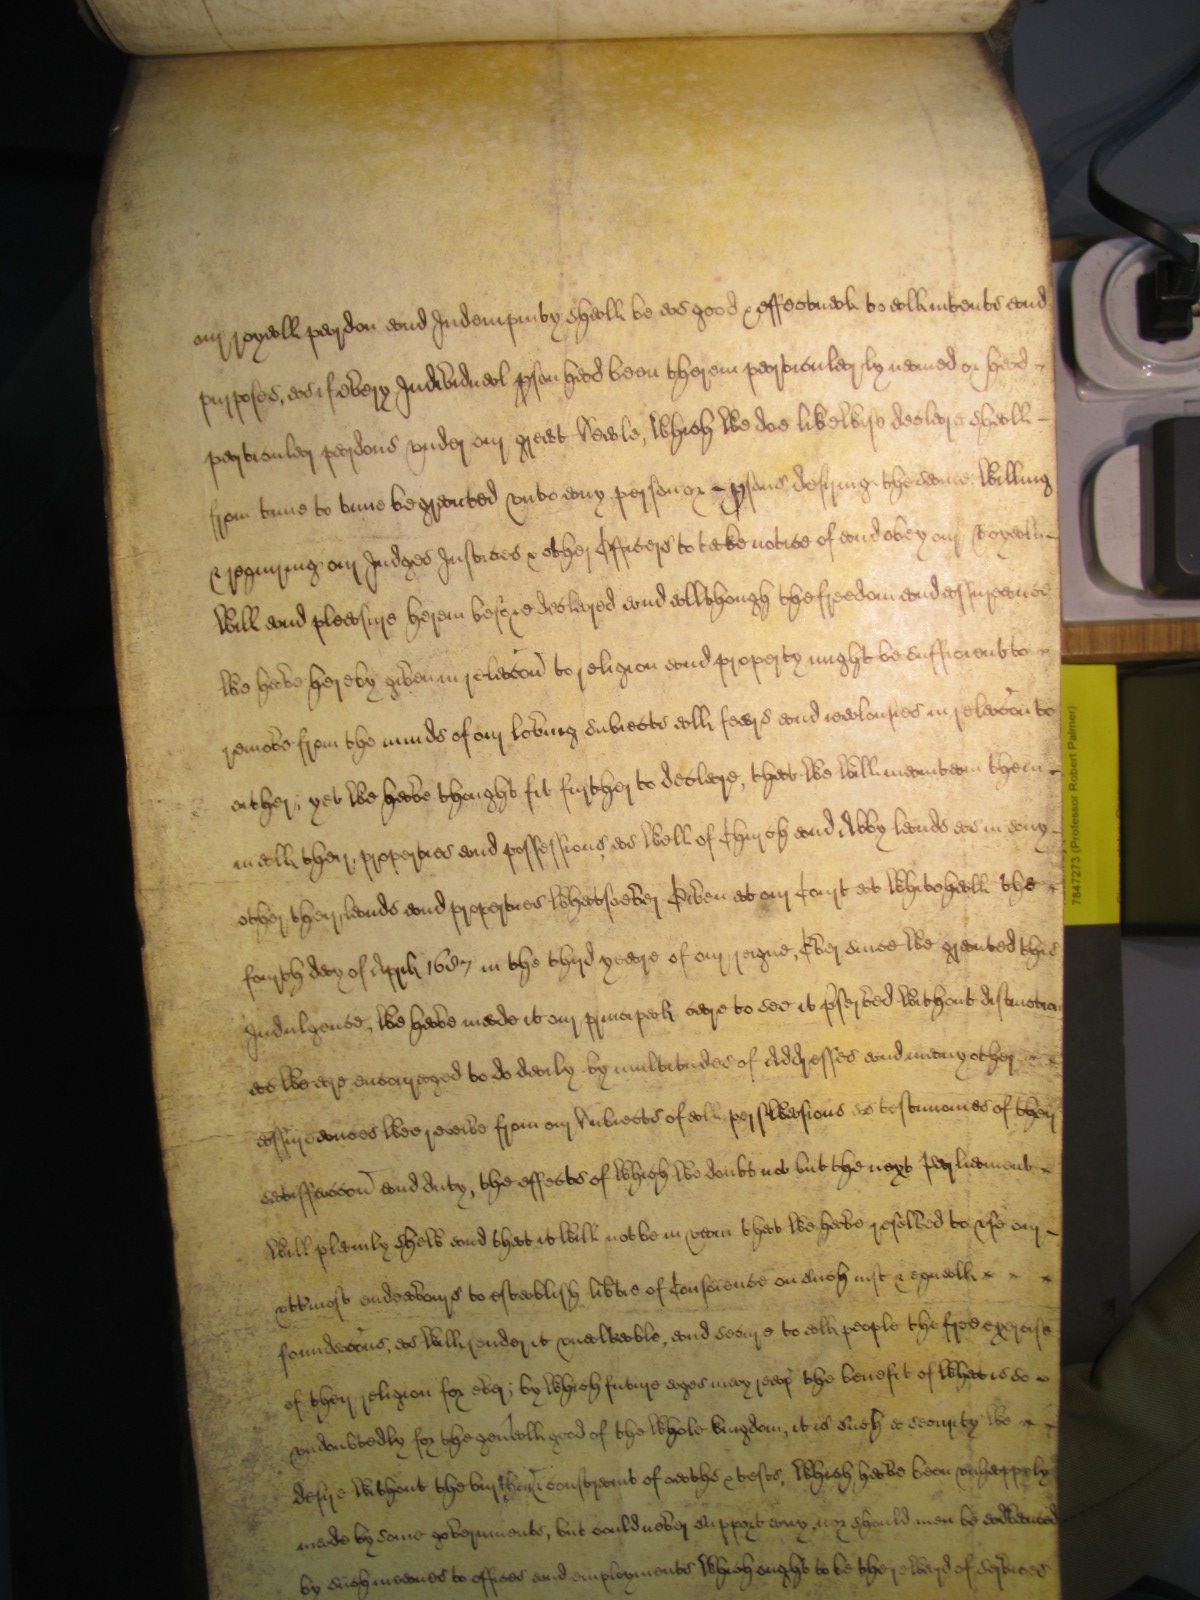 our royall pardon and Indempnity shall be as good & effectuall to all intents and
purposes, as if every Individual pson had been therein particularly named or had
particular pardons under our great Seale, which we doe likewise declare shall
from time to time be granted unto any person or psons desiring the same: willing
& requiring our Judges Justices & other Officers to take notice of and obey our Royall
will and pleasure herein before declared and allthough the freedom and assurance
we have hereby given in relacon to religion and property might be sufficient to
remove from the minds of our loving subiects all fears and iealousies in relacon to
either; yet we have thought fit further to declare, that we will maintain them
in all their properties and possessions, as well of Church and Abby lands as in any
other their lands and properties whatsoever Given at our Court at Whitehall the
fourth day of April 1687 in the third yeare of our reigne, Ever since we granted this
Indulgence, we have made it our principall care to see it pserved without distinction
as we are encouraged to do daily by multitudes of Addresses and many other
assurances wee receive from our Subiects of all perswasions as testimonies of their
satisfaccon and duty, the effects of which we doubt not but the next Parliament
will plainly shew and that it will not be in vain that we have resolved to use our
uttmost endeavours to establish libtie of Conscience on such iust & equall
foundacons, as will render it unalterable, and secure to all people the free exercise
of their religion for ever; by which future ages may reap the benefit of what is so
undoubtedly for the genall good of the whole kingdom, it is such a security we
desire without the burthen & constraint of oaths & tests, which have been unhappily
made by some governments, but could never support any, nor should men be advanced
by such meanes to offices and employments which ought to be the reward of services
7847273 (Professor Robert Palmer)